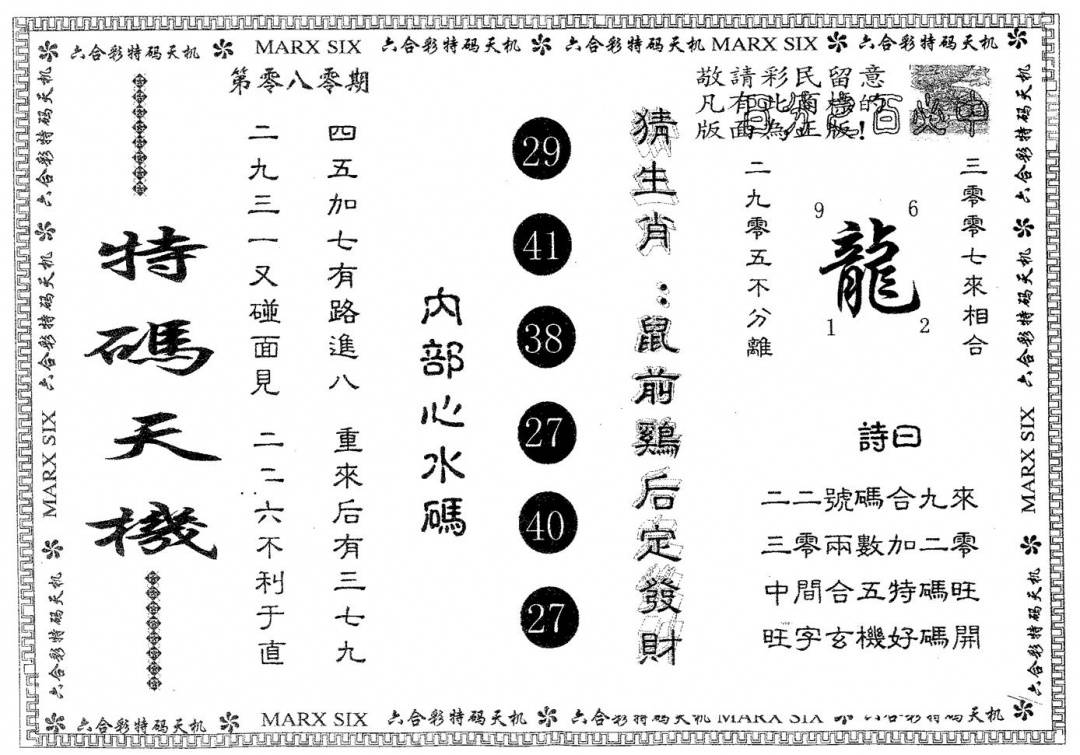 六合彩特码天机 MARX SIX 六合彩特码天机 六合彩特码天机 MARX SIX 六合彩特码天机
第零八零期
敬請彩民留意
凡有此商標的
版面為正版!
特碼天機
二九三一又碰面見 二二六不利于直
四五加七有路進八 重來后有三七九
內部心水碼
29
41
38
27
40
27
猜生肖:鼠前鷄后定發財
二九零五不分離
9
6
龍
1
2
三零零七來相合
詩曰
二二號碼合九來
三零兩數加二零
中間合五特碼旺
旺字玄機好碼開
六合彩特码天机
六合彩特码天机
MARX SIX
六合彩特码天机
六合彩特码天机
六合彩特码天机
MARX SIX
六合彩特码天机
六合彩特码天机 MARX SIX 六合彩特码天机 六合彩特码天机 MARX SIX 六合彩特码天机